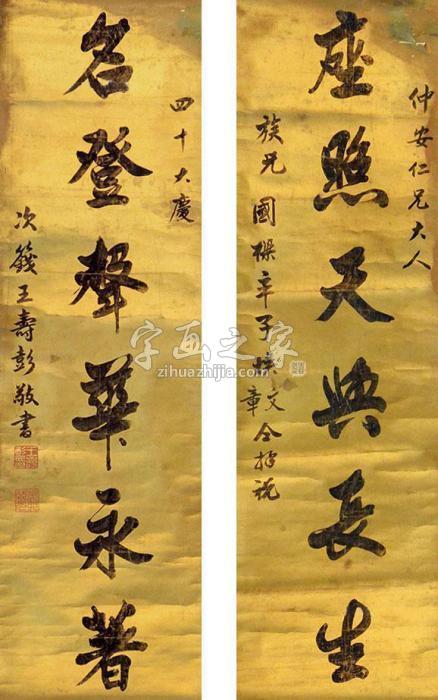 仲安仁兄大人
座照天與長生
族兄國樑率子文章仝拜祝
四十大慶
名登聲華永著
次籛王壽彭敬書
字画之家
zihuazhijia.com